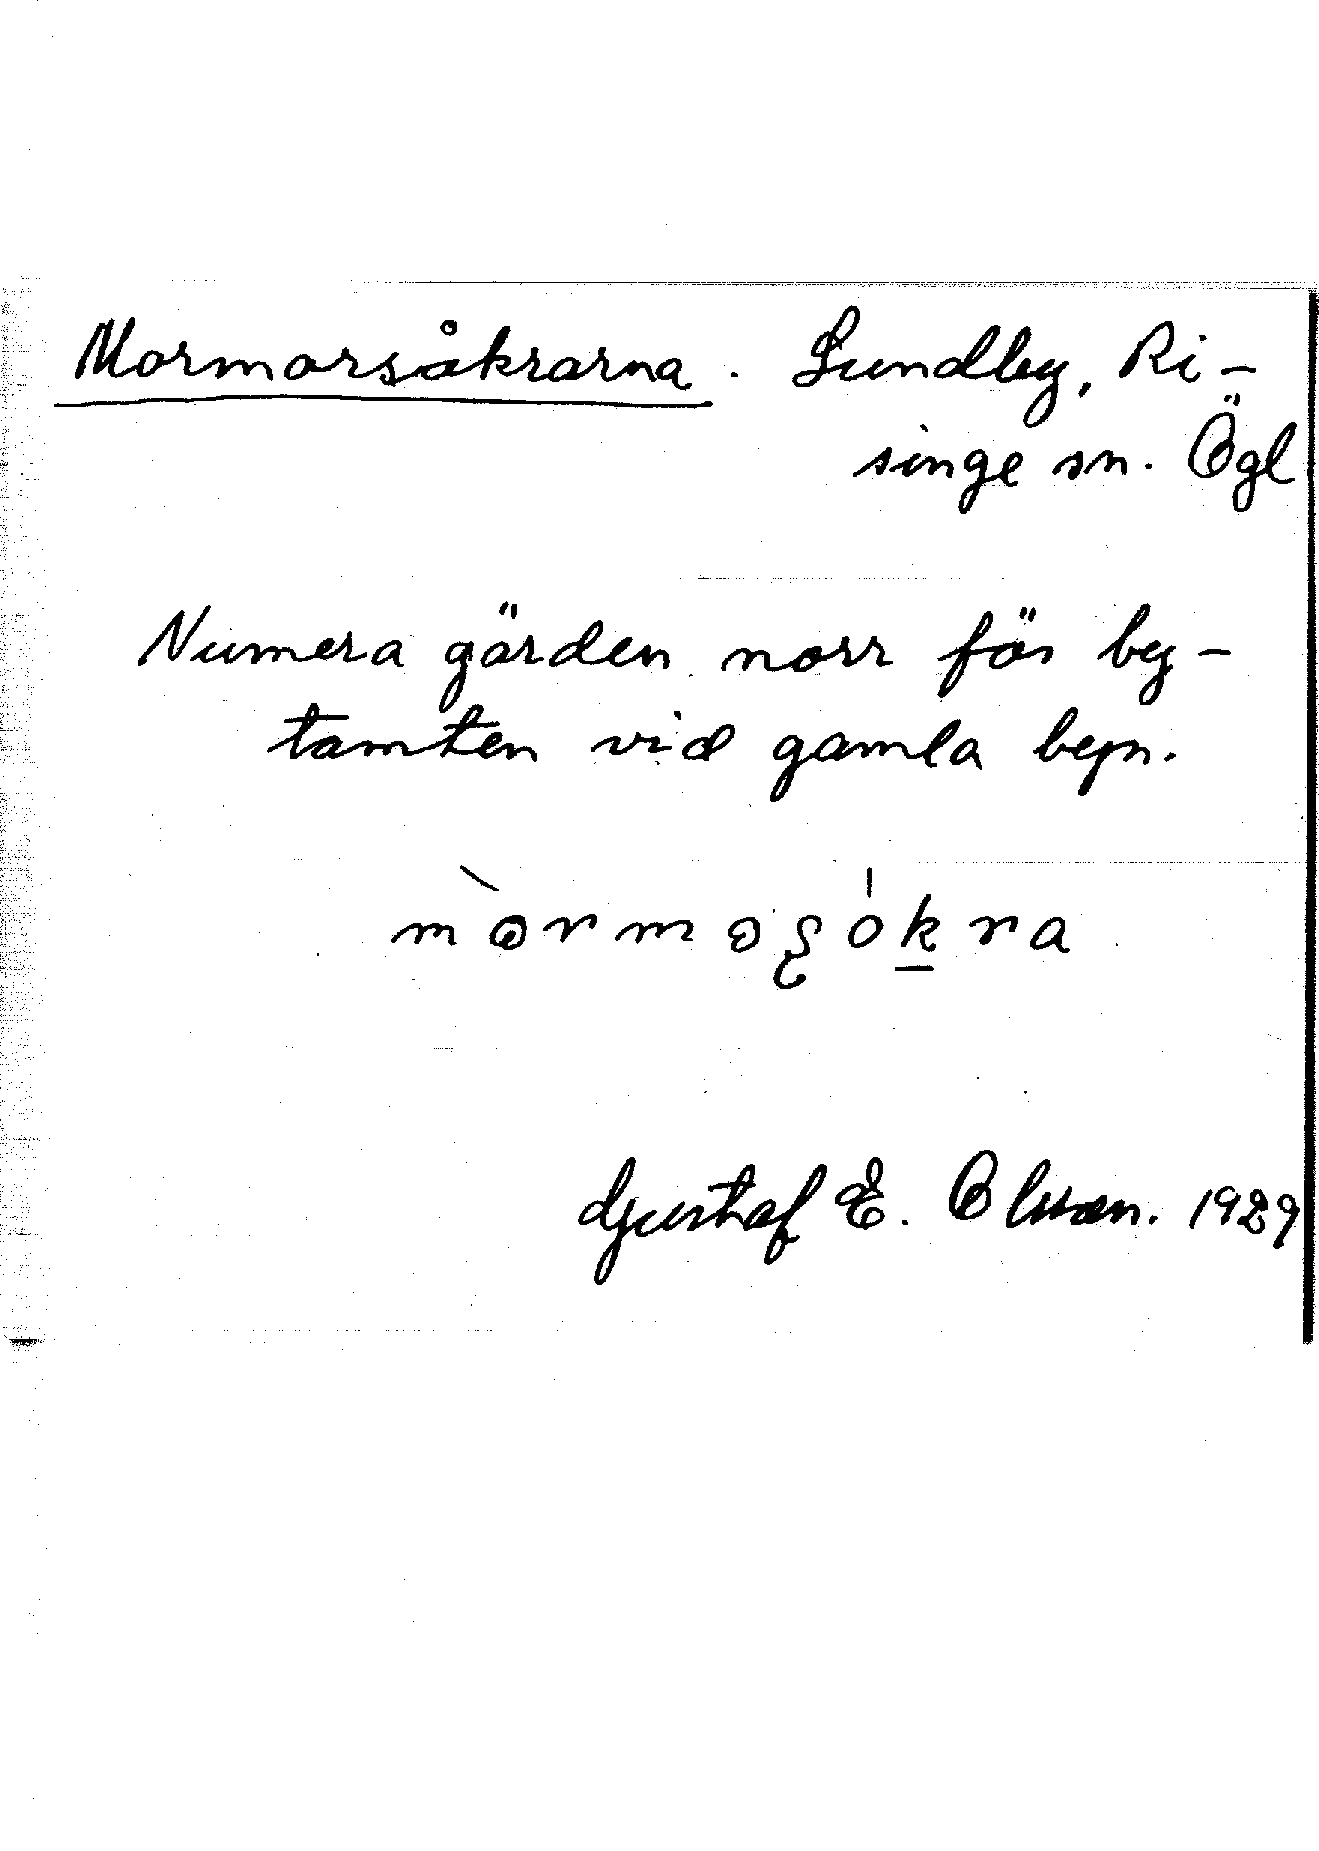 Mormorsåkrarna. Lundby, Ri-
singe sn. Ögl
Numera gärden norr för by-
tomten vid gamla byn.
Gustaf E. Olsson. 1929